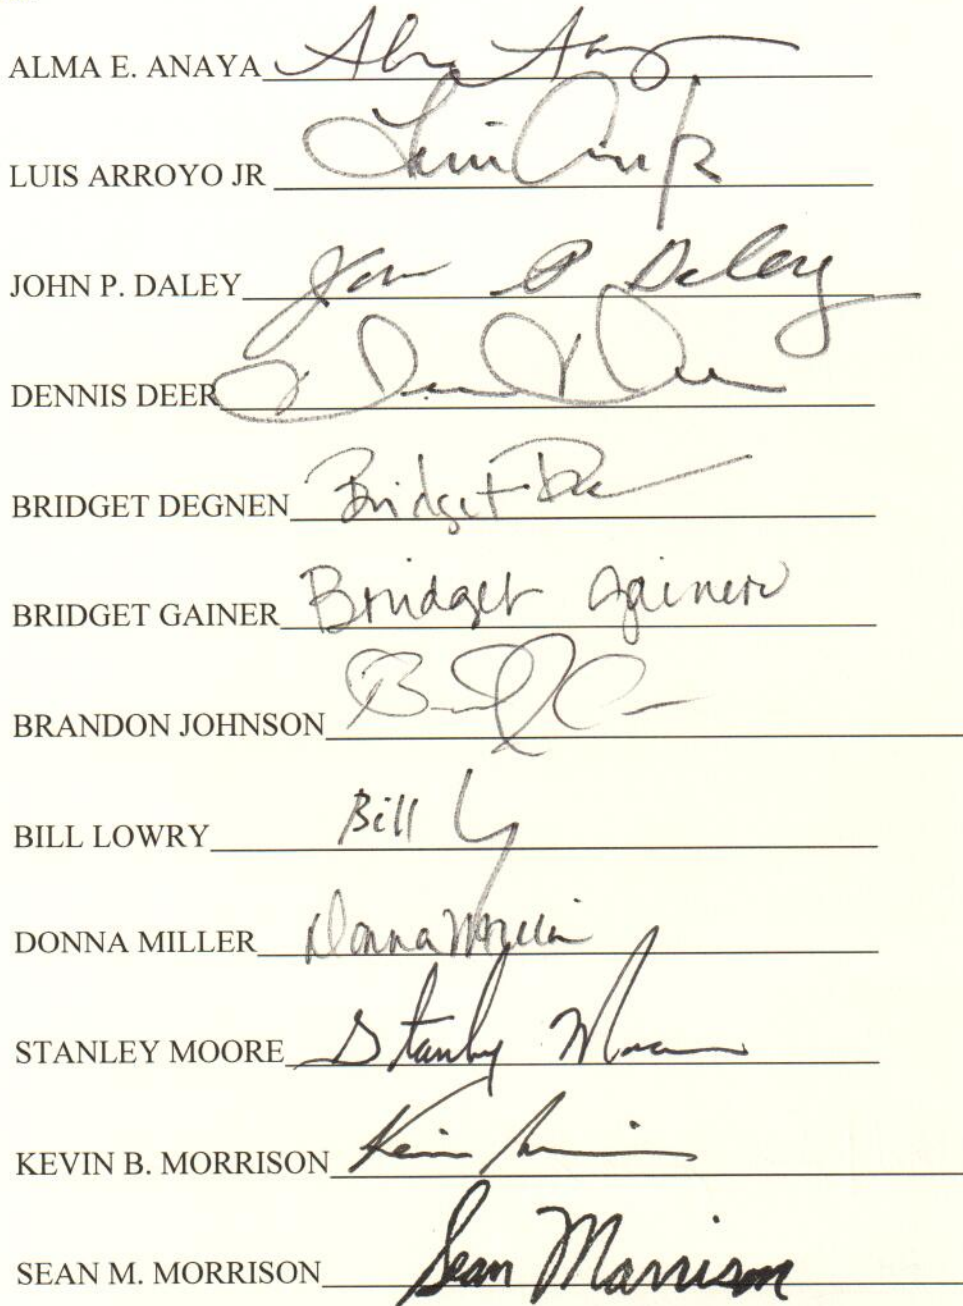 ALMA E. ANAYA
LUIS ARROYO JR
JOHN P. DALEY John P Daley
DENNIS DEER
BRIDGET DEGNEN Bridget
BRIDGET GAINER Bridget Gainer
BRANDON JOHNSON
BILL LOWRY Bill
DONNA MILLER Donna Miller
STANLEY MOORE Stanley Moore
KEVIN B. MORRISON Kevin
SEAN M. MORRISON Sean Morrison